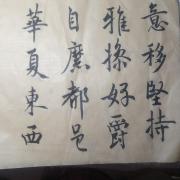 意移堅持
雅操好爵
自縻都邑
華夏東西